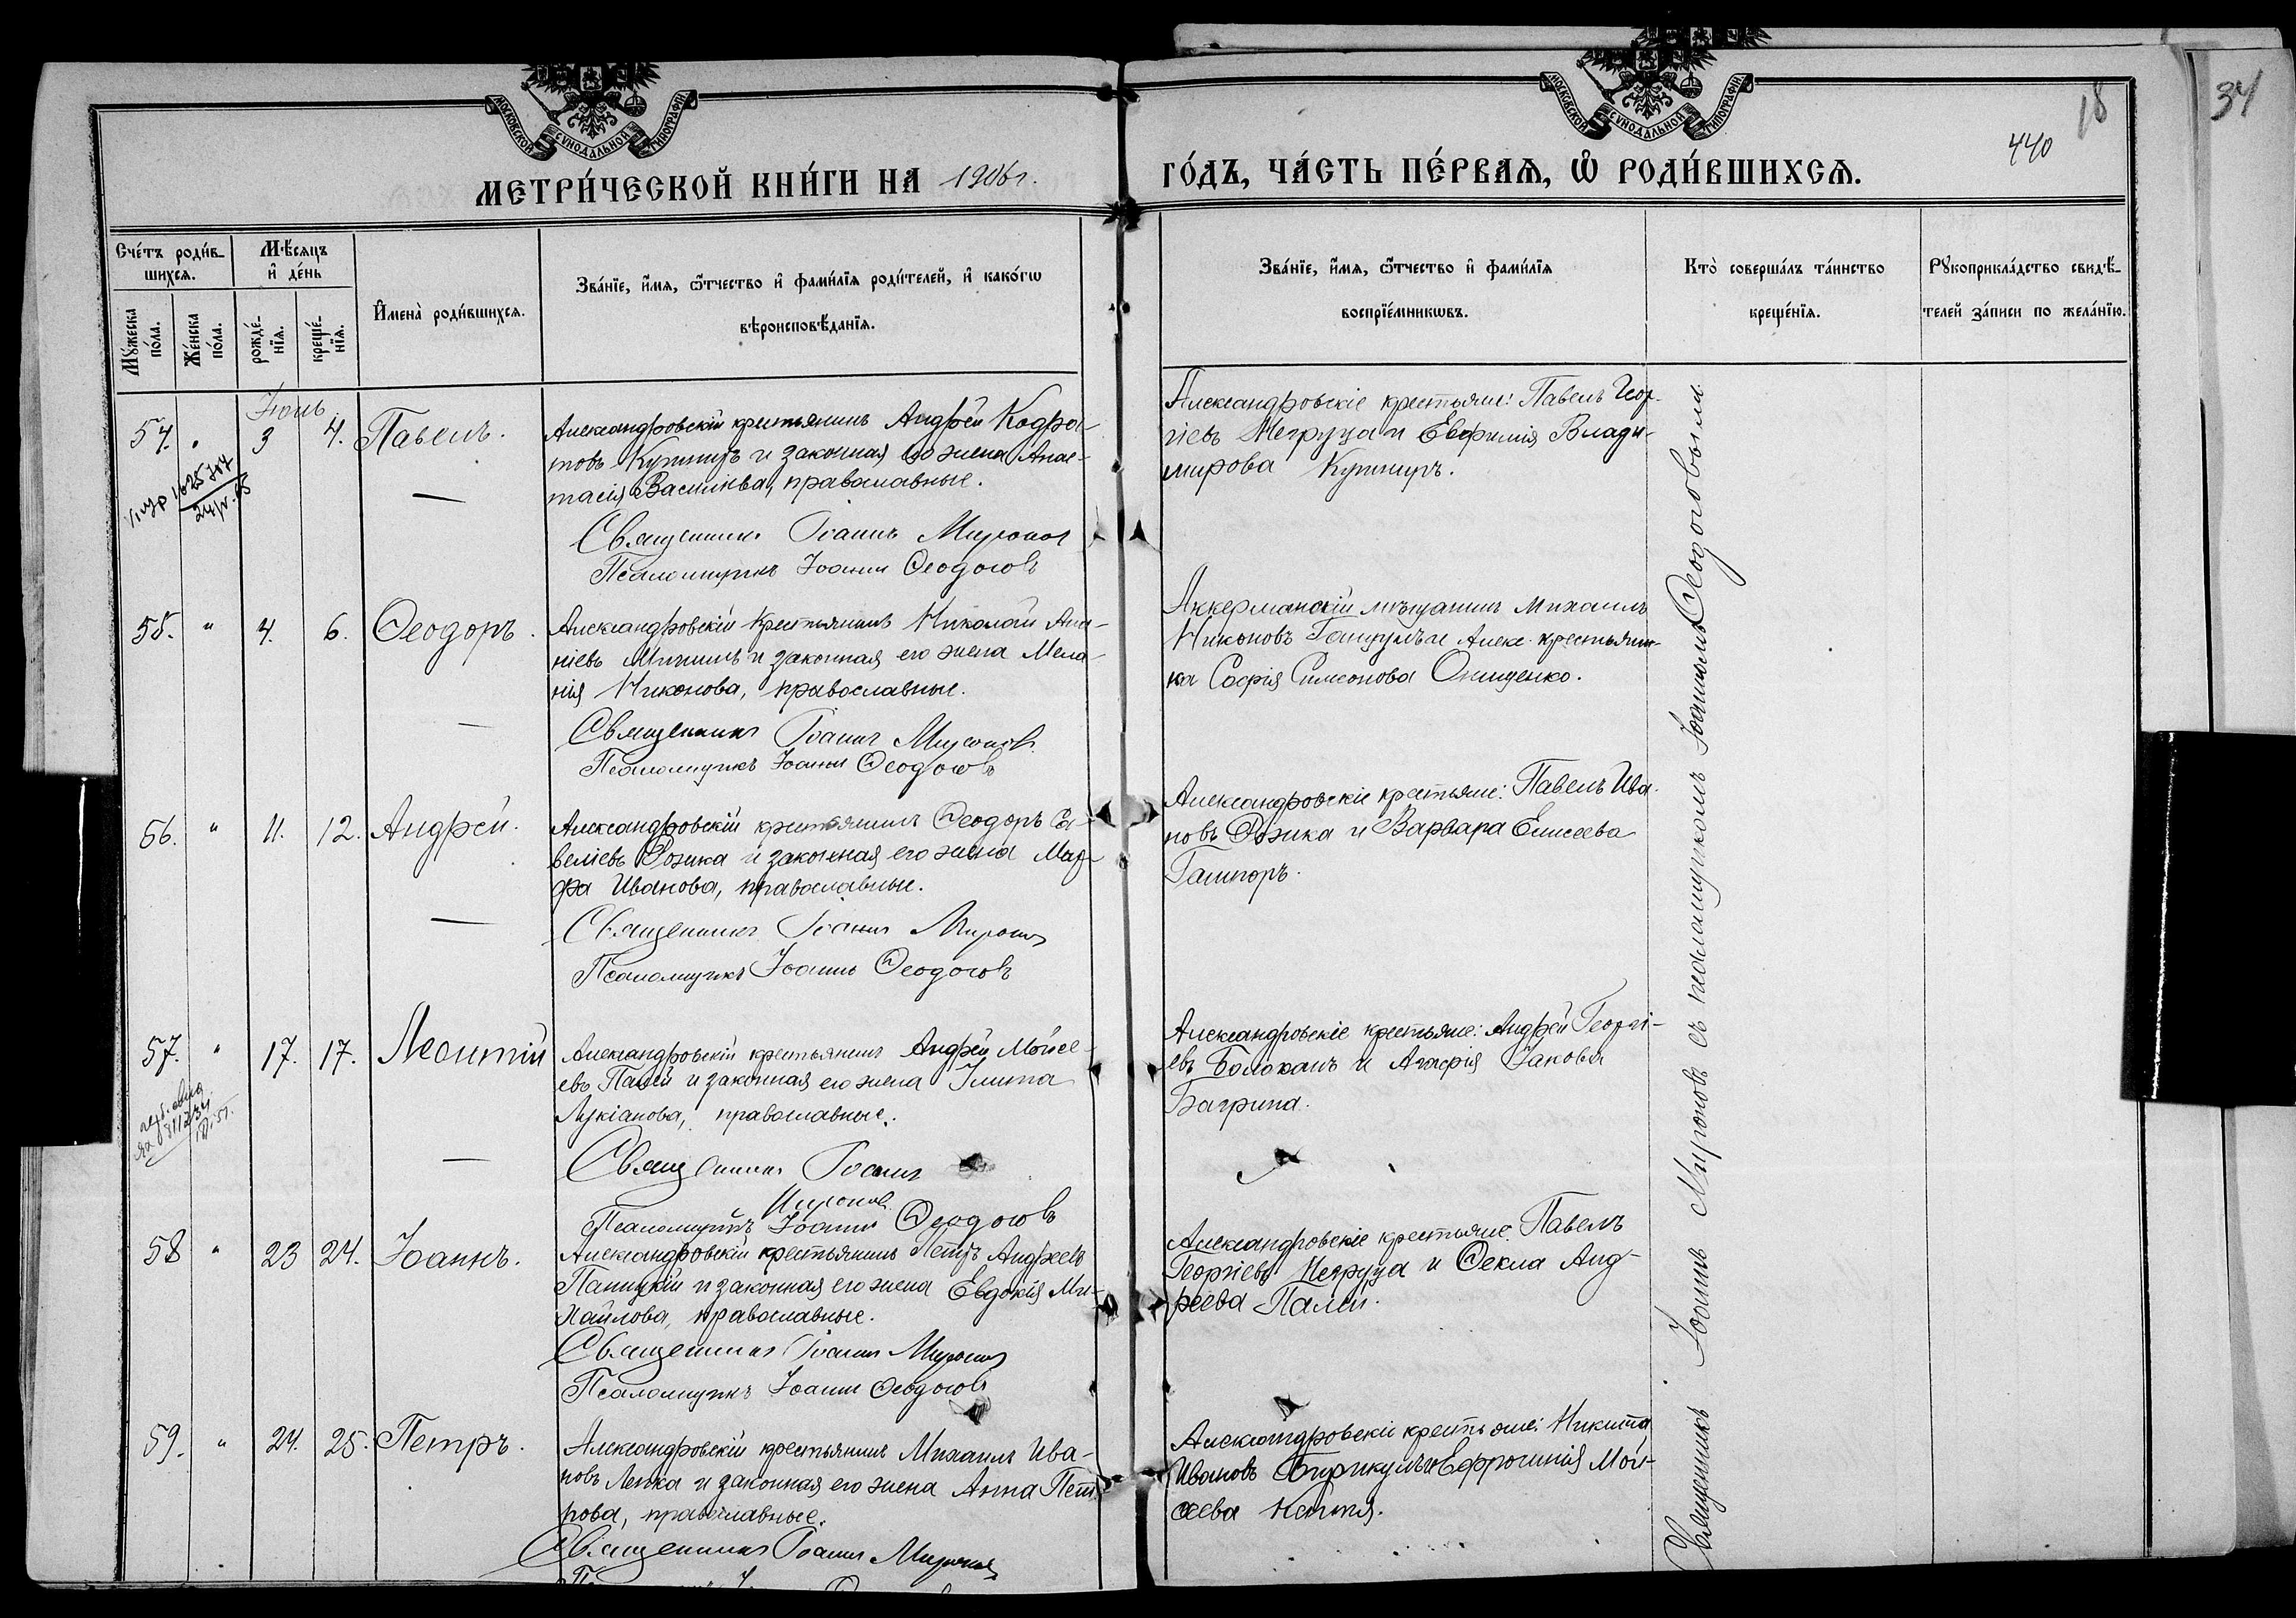 МОСКОВСКОЙ СѴНОДАЛЬНОЙ ТИПОГРАФІИ
МОСКОВСКОЙ СѴНОДАЛЬНОЙ ТИПОГРАФІИ
34
18
440
МЕТРИ́ЧЕСКОЙ КНИ́ГИ НА 1906 г. ГО́ДЪ, ЧА́СТЬ ПЕ́РВАѦ, Ѡ҆ РОДИ́ВШИХСѦ.
Сче́тъ роди́в-
шихсѧ.
Мꙋ́жеска по́ла.
Же́нска по́ла.
Мѣ́сѧцъ
и҆ де́нь
рожде́-
нїѧ.
креще́-
нїѧ.
И҆мена̀ роди́вшихсѧ.
Зва́нїе, и҆́мѧ, ѻ҆́тчество и҆ фами́лїѧ роди́телей, и҆ како́гѡ
вѣроисповѣ́данїѧ.
Зва́нїе, и҆́мѧ, ѻ҆́тчество и҆ фами́лїѧ
воспрїе́мникѡвъ.
Кто̀ соверша́лъ та́инство
креще́нїѧ.
Рꙋкоприкла́дство свидѣ́-
телей за́писи по жела́нїю.
Іюнь
54. " 3 4. Павелъ.
Александровскій крестьянинъ Андрей Кодра-
товъ Кушниръ и законная его жена Анас-
тасія Васильева, православные.
Священникъ Іоаннъ Мироновъ
Псаломщикъ Іоаннъ Ѳеодосовъ
Александровскіе крестьяне: Павелъ Геор-
гіевъ Негруца и Евфимія Влади-
мирова Кушниръ.
55. " 4. 6. Ѳеодоръ.
Александровскій крестьянинъ Николай Ана-
ніевъ и законная его жена Мела-
нія Никонова, православные.
Священникъ Іоаннъ Мироновъ
Псаломщикъ Іоаннъ Ѳеодосовъ
Аккерманскій мѣщанинъ Михаилъ
Никоновъ и Алекс. крестьян-
ка Софія Симеонова Онищенко.
56. " 11. 12. Андрей.
Александровскій крестьянинъ Ѳеодоръ Са-
веліевъ Рожка и законная его жена Мар-
фа Иванова, православные.
Священникъ Іоаннъ Мироновъ
Псаломщикъ Іоаннъ Ѳеодосовъ
Александровскіе крестьяне: Павелъ Ива-
новъ Рожка и Варвара Елисеева
57. " 17. 17. Леонтій
Александровскій крестьянинъ Андрей Мойсе-
евъ Палій и законная его жена
Лукіанова, православные.
Священникъ Іоаннъ
Мироновъ
Псаломщикъ Іоаннъ Ѳеодосовъ
Александровскіе крестьяне: Андрей Георгі-
евъ Болоканъ и Агафія Іакова
Багрина.
58 " 23 24. Іоаннъ.
Александровскій крестьянинъ Петръ Андреевъ
и законная его жена Евдокія Ми-
хайлова, православные.
Священникъ Іоаннъ Мироновъ
Псаломщикъ Іоаннъ Ѳеодосовъ
Александровскіе крестьяне: Павелъ
Георгіевъ Негруца и Ѳекла Анд-
реева Палій.
59. " 24. 25. Петръ.
Александровскій крестьянинъ Михаилъ Ива-
новъ Лепка и законная его жена Анна Пет-
рова, православные.
Священникъ Іоаннъ Мироновъ
Александровскіе крестьяне: Никита
Ивановъ и Ефросинія Мой-
сеева
Священникъ Іоаннъ Мироновъ съ псаломщикомъ Іоанномъ Ѳеодосовымъ